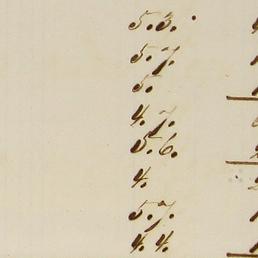 5.3.
5.7.
5.
4.7.
5.6.
4.
5.7.
4.4.